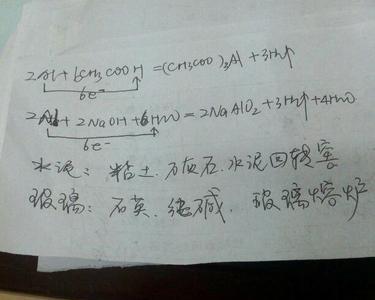 2Al+6CH3COOH=(CH3COO)3Al+3H2↑
6e-
2Al+2NaOH+6H2O=2NaAlO2+3H2↑+4H2O
6e-
水泥：粘土.石灰石.水泥回转窑
玻璃：石英.纯碱.玻璃熔炉